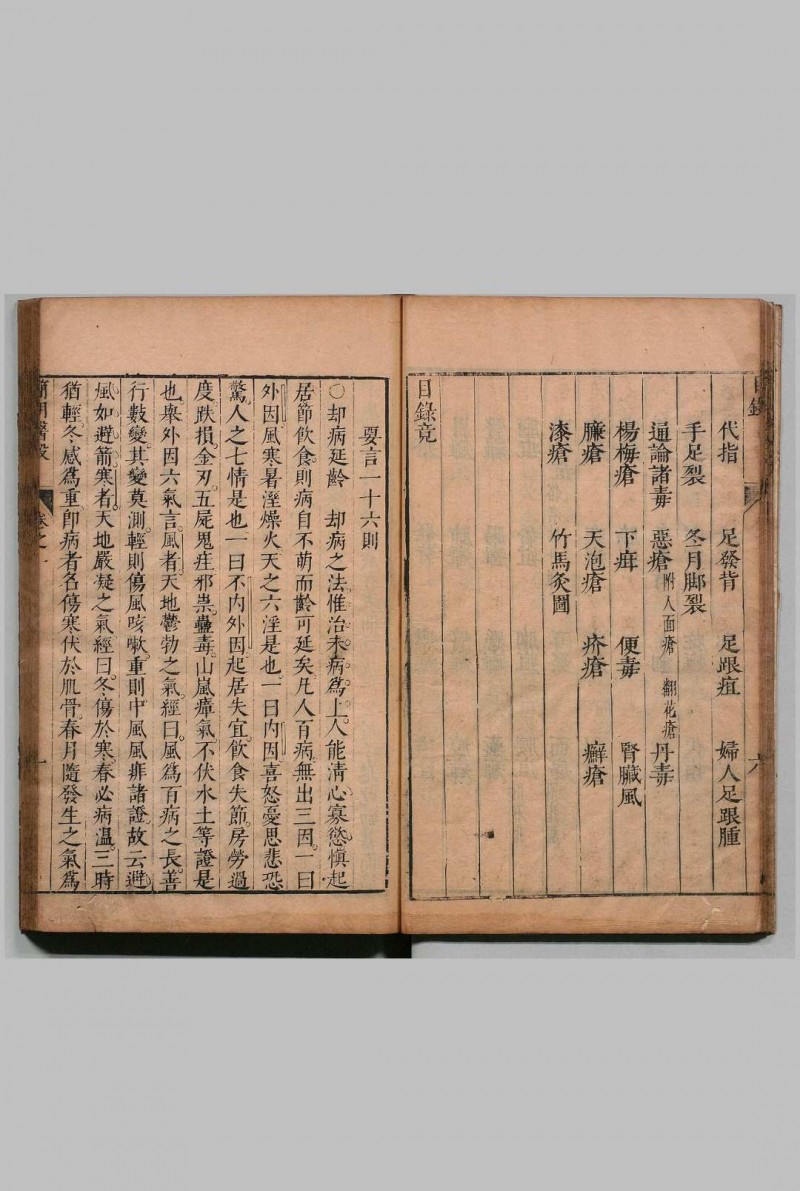 目錄
六
代指　足發背　足跟疽　婦人足跟腫
手足裂　冬月脚裂
通論諸毒　惡瘡附人面瘡　翻花瘡　丹毒
楊梅瘡　下疳　便毒　腎臟風
臁瘡　天泡瘡　疥瘡　癬瘡
漆瘡　竹馬灸圖
目錄竟
要言一十六則
○却病延齡　却病之法惟治未病爲上人能清心寡慾愼起
居節飮食則病自不萌而齡可延矣凡人百病無出三因一曰
外因風寒暑溼燥火天之六淫是也一曰内因喜怒憂思悲恐
驚人之七情是也一曰不内外因起居失宜飮食失節房勞過
度跌損金刃五屍鬼疰邪祟蠱毒山嵐瘴氣不伏水土等證是
也舉外因六氣言風者天地鬱勃之氣經曰風爲百病之長善
行數變其變莫測輕則傷風咳嗽重則中風風痱諸證故云避
風如避箭寒者天地嚴凝之氣經曰冬傷於寒春必病溫三時
猶輕冬感爲重卽病者名傷寒伏於肌骨春月隨發生之氣爲
簡明醫彀
卷之一
一